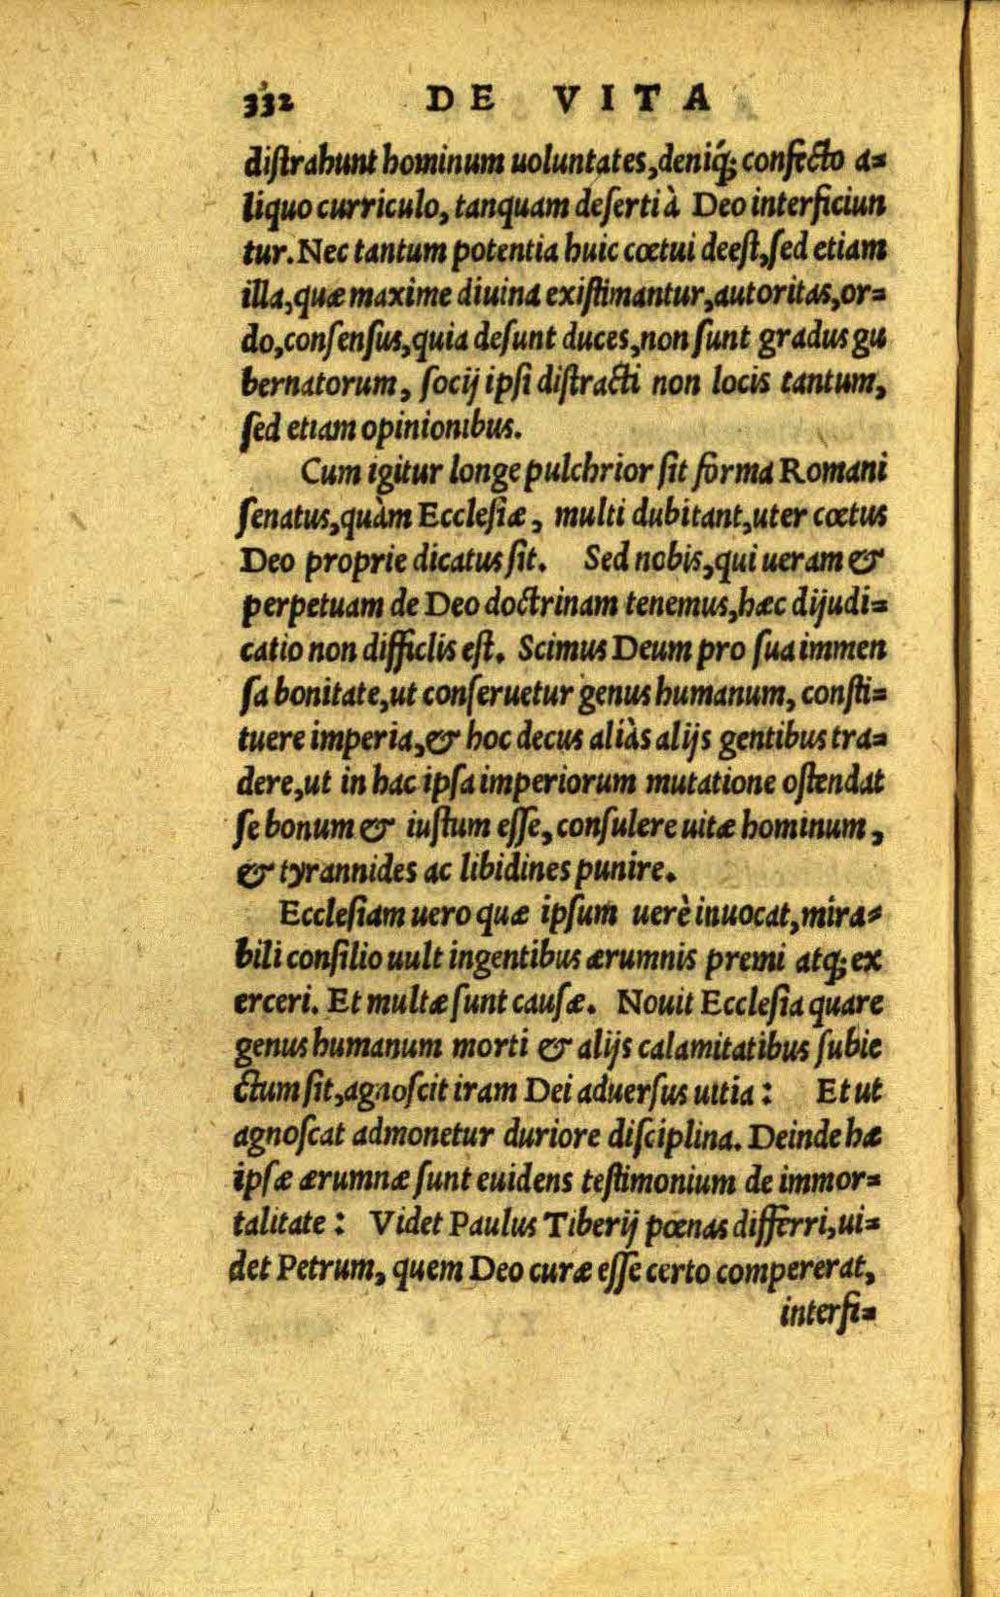 332 DE VITA
diſtrahunt hominum uoluntates, deniq́; confecto a=
liquo curriculo, tanquam deſerti à Deo interficiun
tur. Nec tantum potentia huic cœtui deeſt, ſed etiam
illa, quæ maxime diuina exiſtimantur, autoritas, or=
do, conſenſus, quia deſunt duces, non ſunt gradus gu
bernatorum, ſocij ipſi diſtracti non locis tantum,
ſed etiam opinionibus.
Cum igitur longe pulchrior ſit forma Romani
ſenatus, quàm Eccleſiæ, multi dubitant, uter cœtus
Deo proprie dicatus ſit. Sed nobis, qui ueram &
perpetuam de Deo doctrinam tenemus, hæc dijudi=
catio non difficlis eſt. Scimus Deum pro ſua immen
ſa bonitate, ut conſeruetur genus humanum, conſti=
tuere imperia, & hoc decus aliàs alijs gentibus tra=
dere, ut in hac ipſa imperiorum mutatione oſtendat
ſe bonum & iuſtum eſſe, conſulere uitæ hominum,
& tyrannides ac libidines punire.
Eccleſiam uero quæ ipſum uerè inuocat, mira=
bili conſilio uult ingentibus ærumnis premi atq; ex
erceri. Et multæ ſunt cauſæ. Nouit Eccleſia quare
genus humanum morti & alijs calamitatibus ſubie
ctum ſit, agnoſcit iram Dei aduerſus uitia: Et ut
agnoſcat admonetur duriore diſciplina. Deinde hæ
ipſæ ærumnæ ſunt euidens teſtimonium de immor=
talitate: Videt Paulus Tiberij pœnas differri, ui=
det Petrum, quem Deo curæ eſſe certo compererat,
interfi=